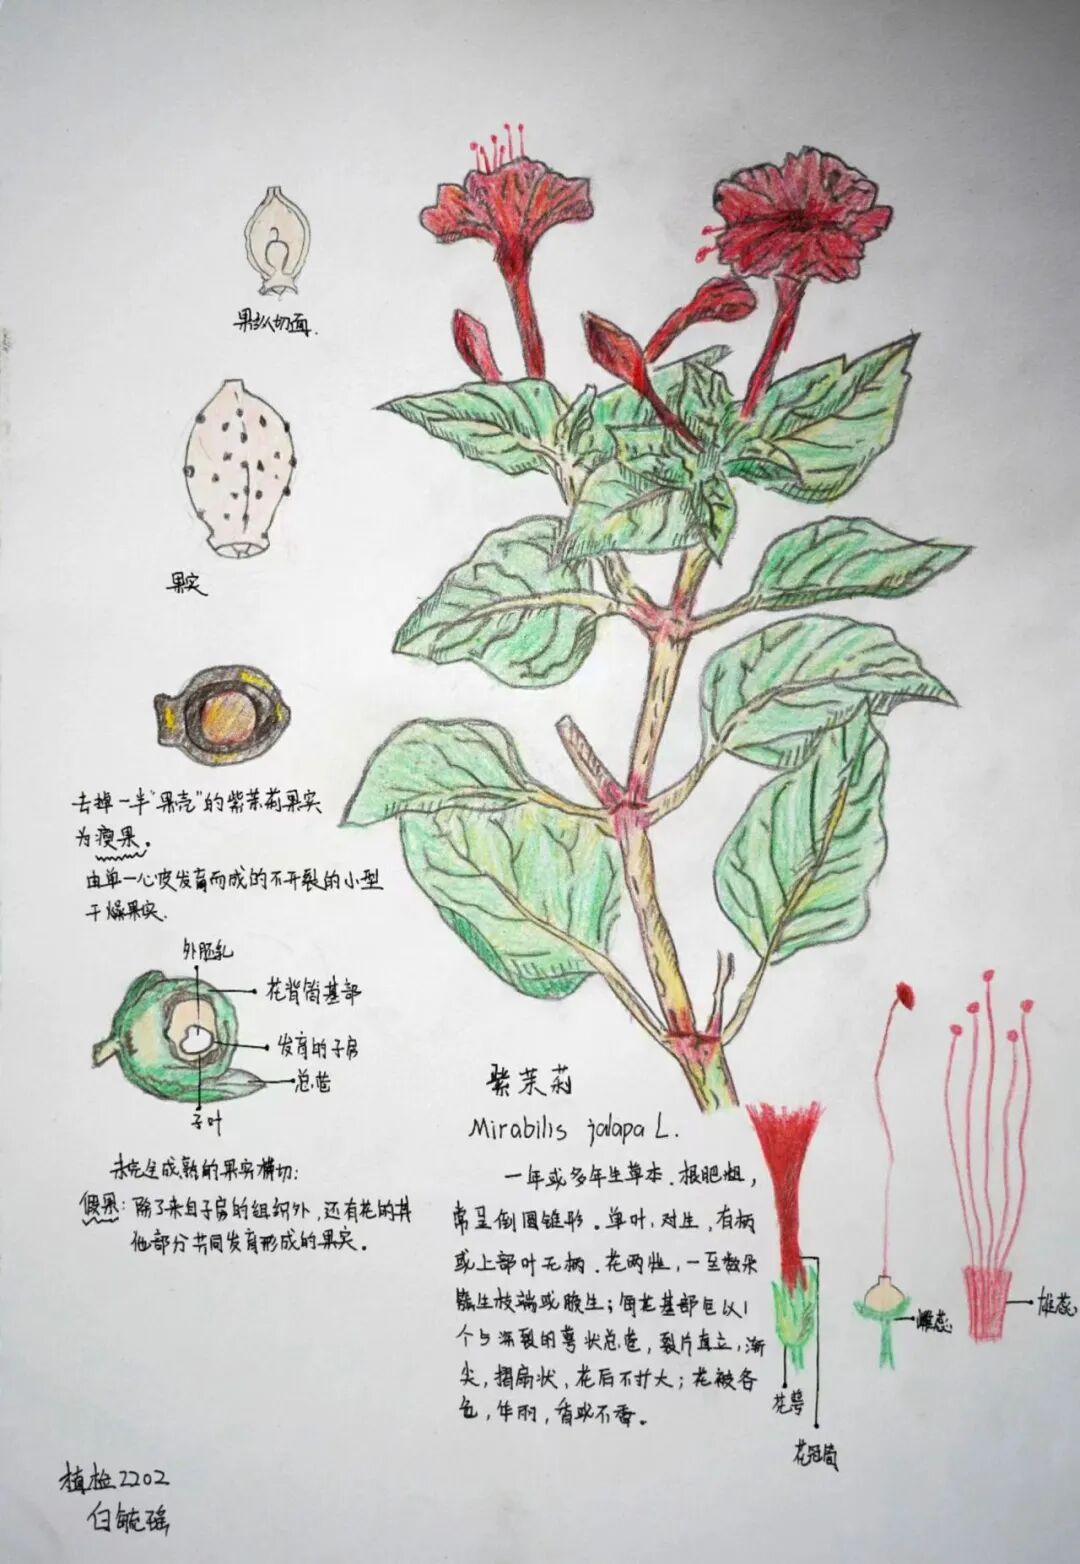 果纵切面.
果实
去掉一半“果壳”的紫茉莉果实
为瘦果。
由单一心皮发育而成的不开裂的小型
干燥果实.
外胚乳
花背筒基部
发育的子房
总苞
子叶
未完全成熟的果实横切:
假果:除了来自子房的组织外,还有花的其
他部分共同发育形成的果实。
紫茉莉
Mirabilis jalapa L.
一年或多年生草本.根肥粗,
常呈倒圆锥形。单叶,对生,有柄
或上部叶无柄.花两性,一至数朵
簇生枝端或腋生;每花基部包以1
个5深裂的萼状总苞,裂片直立,渐
尖,摺扇状,花后不扩大;花被各
色,华丽,香或不香。
花萼
花冠筒
雌蕊
雄蕊
植检2202
白毓瑶